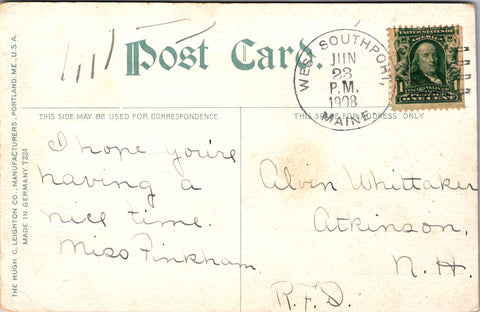 Post Card.
WEST SOUTHPORT,
JUN
23
P.M.
1908
MAINE
UNITED STATES OF AMERICA
1
FRANKLIN
ONE CENT
THIS SIDE MAY BE USED FOR CORRESPONDENCE.
THIS SIDE FOR ADDRESS ONLY.
THE HUGH C. LEIGHTON CO., MANUFACTURERS, PORTLAND, ME., U.S.A.
MADE IN GERMANY. 7224
I hope you're
having a
nice time.
Miss Pinkham.
Alvin Whittaker
Atkinson,
N.H.
R.F.D.